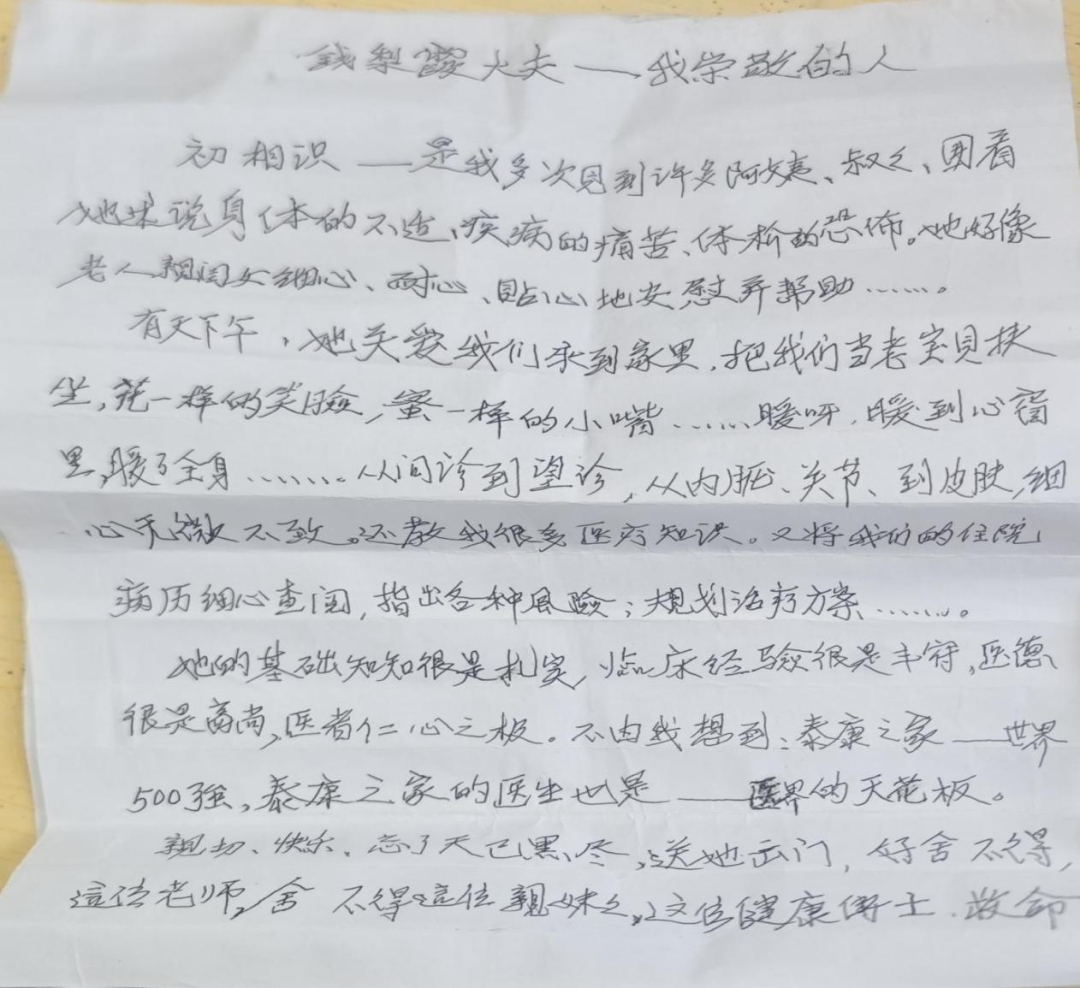 钱梨霞大夫——我崇敬的人
初相识——是我多次见到许多阿姨、叔叔、围着
她来说身体的不适、疾病的痛苦、体检的恐怖。她好像
老人親闺女细心、耐心、贴心地安慰并帮助……。
有天下午，她关爱我们来到家里，把我们当老宝贝扶
坐，花一样的笑脸，蜜一样的小嘴……暖呀，暖到心窝
里，暖了全身……从问诊到望诊，从内脏、关节、到皮肤，细
心无微不致。还教我很多医疗知识。又将我们的住院
病历细心查阅，指出各种风险；规划治疗方案……。
她的基础知知很是扎实，临床经验很是丰富，医德
很是高尚，医者仁心之极。不由我想到：泰康之家——世界
500强，泰康之家的医生也是——医界的天花板。
親切、快乐、忘了天已黑尽，送她出门，好舍不得，
這位老师，舍不得這位親妹妹，这位健康博士、救命